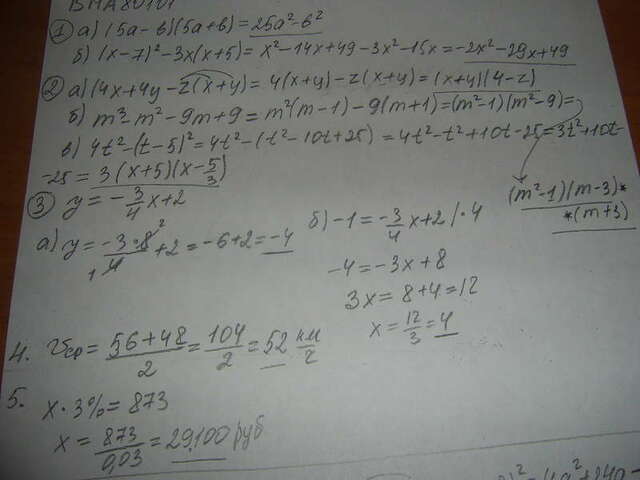 ВНА80101
① а) (5a-б)(5a+б) = 25a²-б²
б) (x-7)²-3x(x+5) = x²-14x+49-3x²-15x = -2x²-29x+49
② а) (4x+4y-z(x+y) = 4(x+y)-z(x+y) = (x+y)(4-z)
б) m³-m²-9m+9 = m²(m-1)-9(m+1) = (m²-1)(m²-9) =
(m²-1)(m-3)*
*(m+3)
в) 4t²-(t-5)² = 4t²-(t²-10t+25) = 4t²-t²+10t-25 = 3t²+10t-
-25 = 3(x+5)(x-5/3)
③ y = -3/4x+2
а) y = -3·8²/4 1 +2 = -6+2 = -4
б) -1 = -3/4x+2 /·4
-4 = -3x+8
3x = 8+4 = 12
x = 12/3 = 4
4. Vср = 56+48/2 = 104/2 = 52 км/ч
5. x·3% = 873
x = 873/0,03 = 29.100 руб